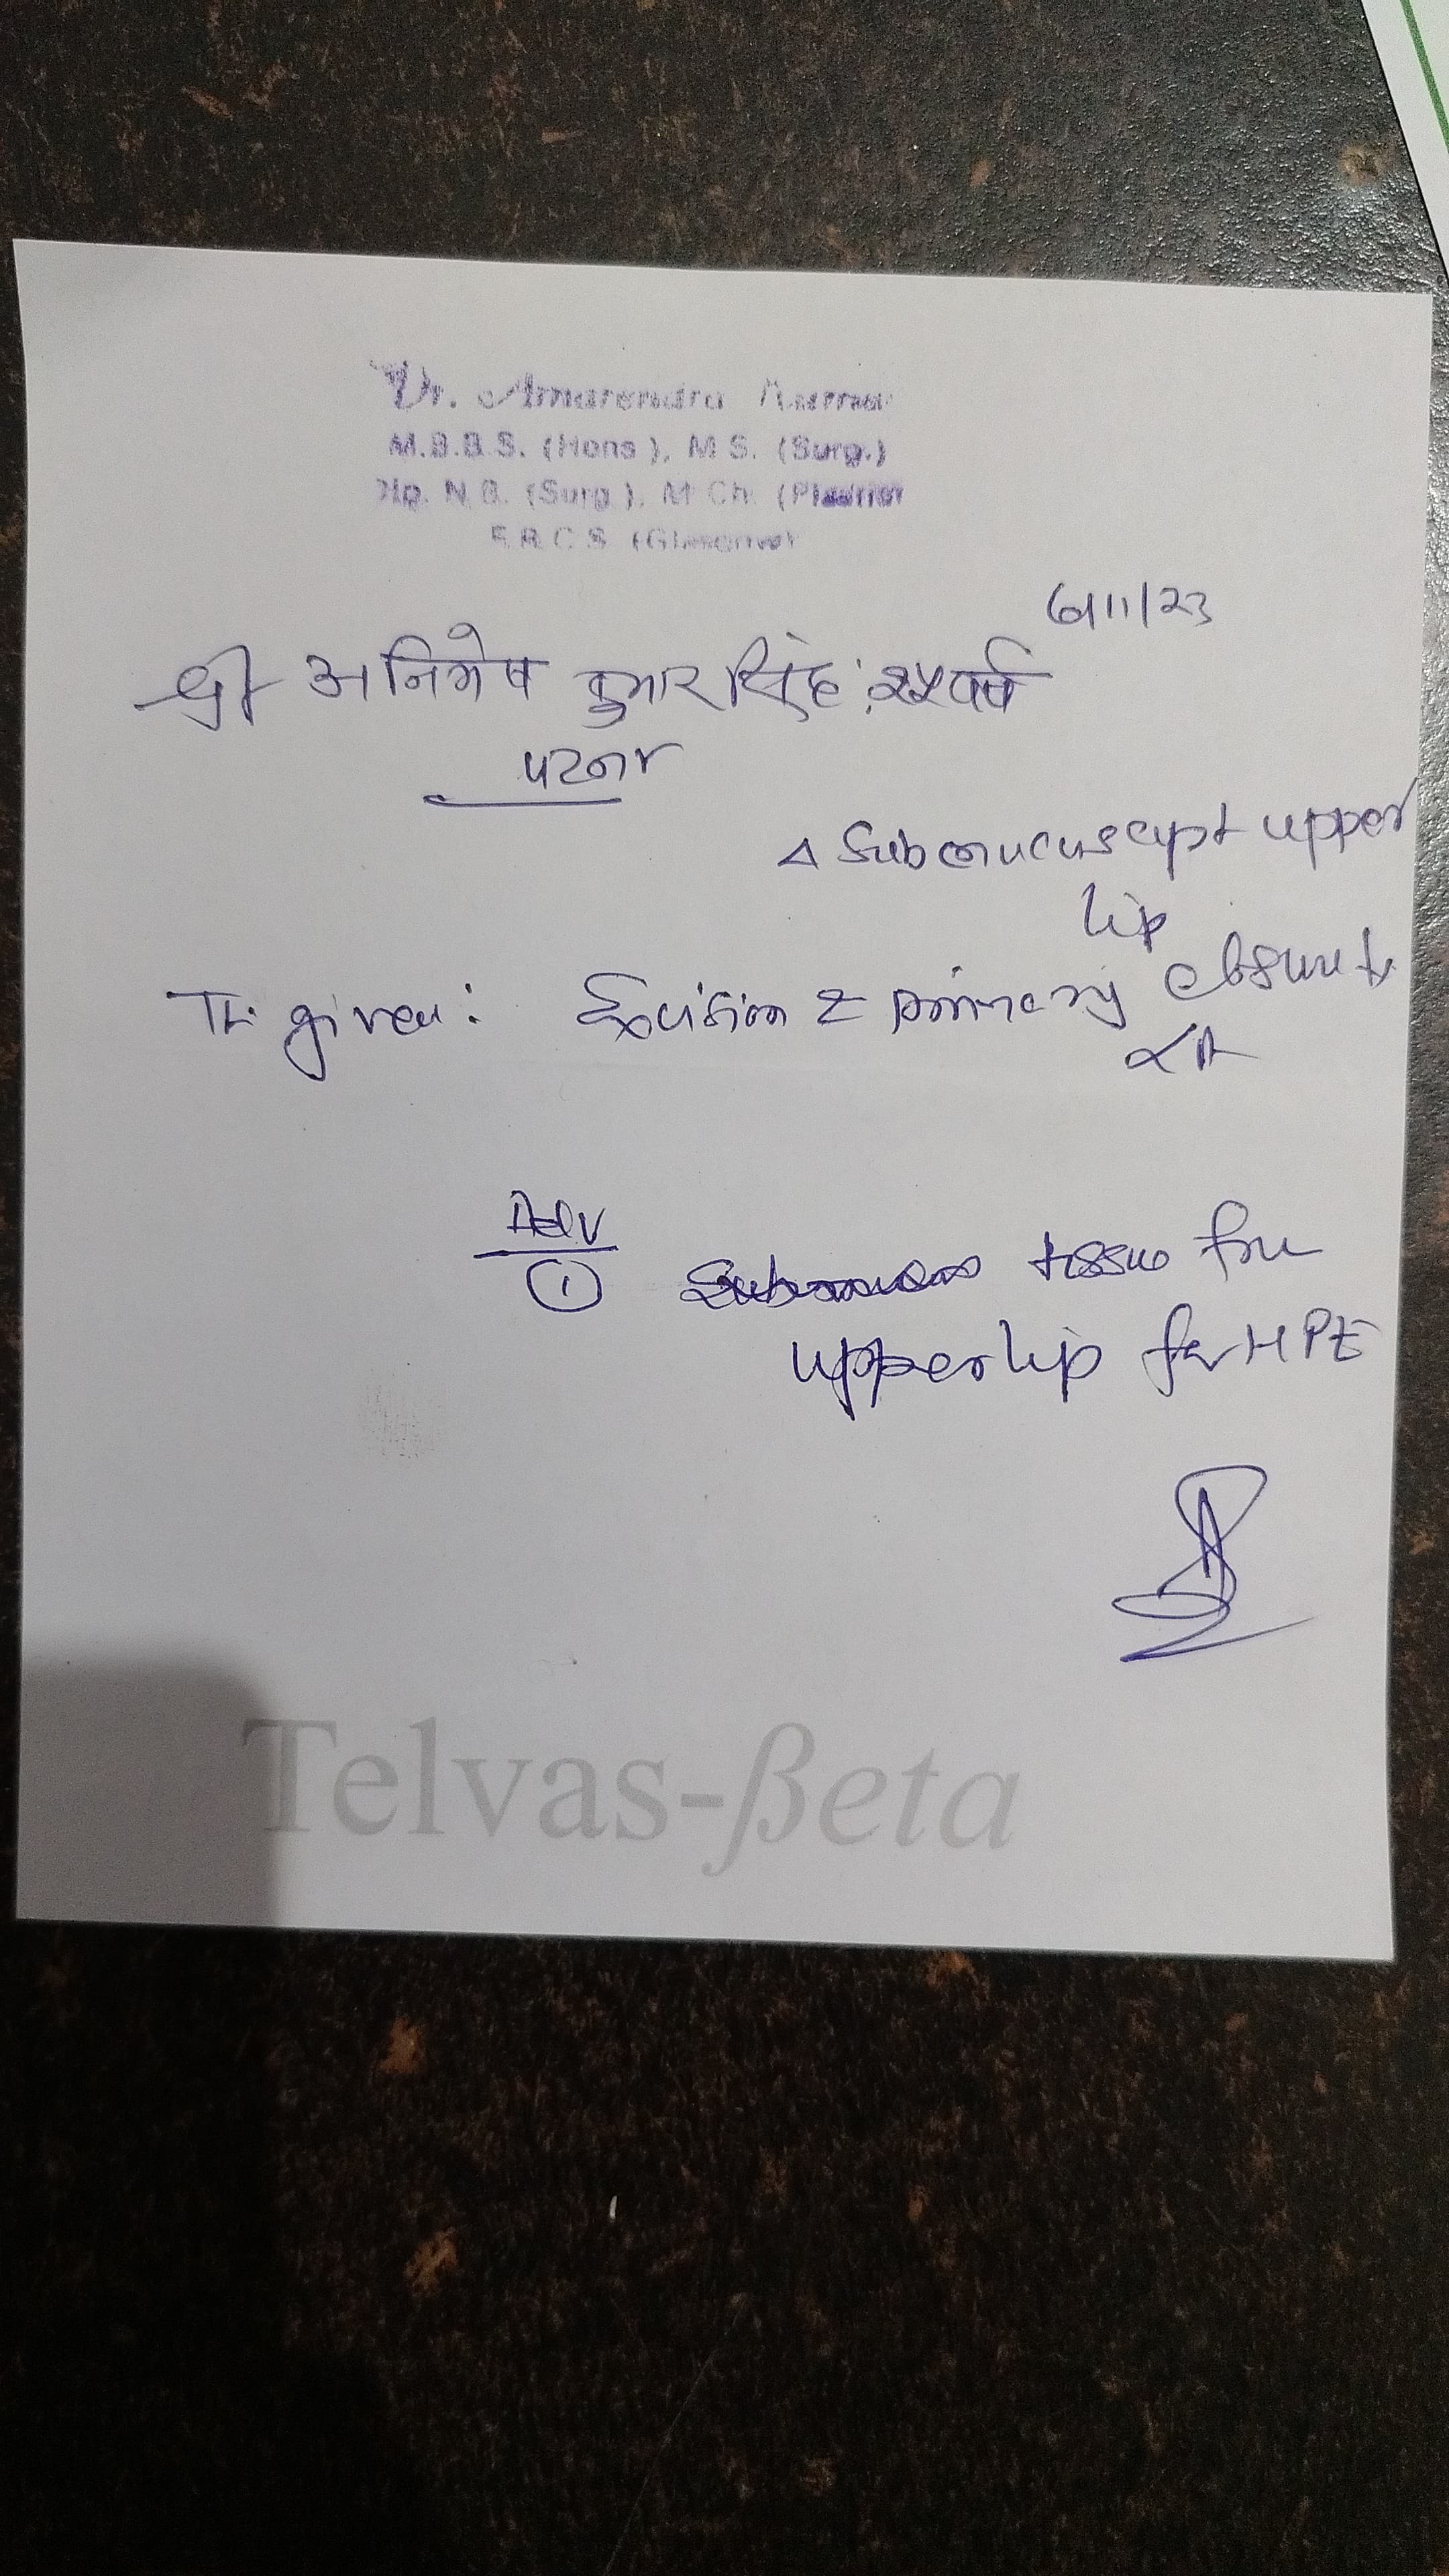 Dr. Amarendra Kumar
M.B.B.S. (Hons), M.S. (Surg.)
Dip. N.B. (Surg.), M.Ch. (Plastic)
F.R.C.S. (Glasgow)
6/11/23
श्री अनिमेष कुमार सिंह, २५ वर्ष
पटना
Δ Submucus cyst upper
lip
Tt. given: Excision c̄ primary closure
LA
Adv
① tissue from
upper lip for HPE
Telvas-βeta